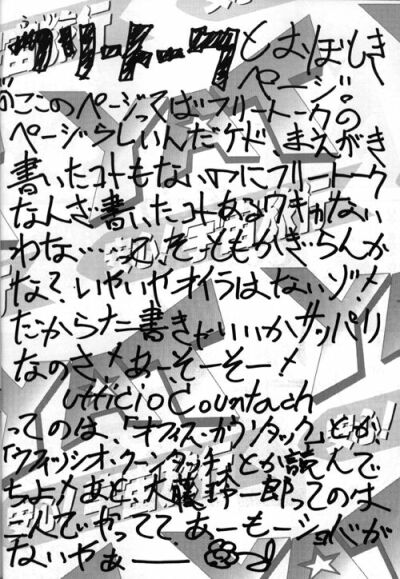 フリートークとおぼしき
ページ。
のここのページってばフリートークの
ページらしいんだケドまえがき
書いたコトもないのにフリートーク
なんざ書いたコトあるワキがない
わな…
ともかぎらんか
な?いやいやオイラはないゾ!
だからナニ書きゃいいかサッパリ
なのさ!あーそーそー!
Ufficio Countach
ってのは、「オフィス・カウンタック」とか
「ウフィッシオ・クーンタッチ」とか読んで
ちょ!あと、大藤鈴一郎ってのは
んでやってて あーもーショバが
ないやぁ——